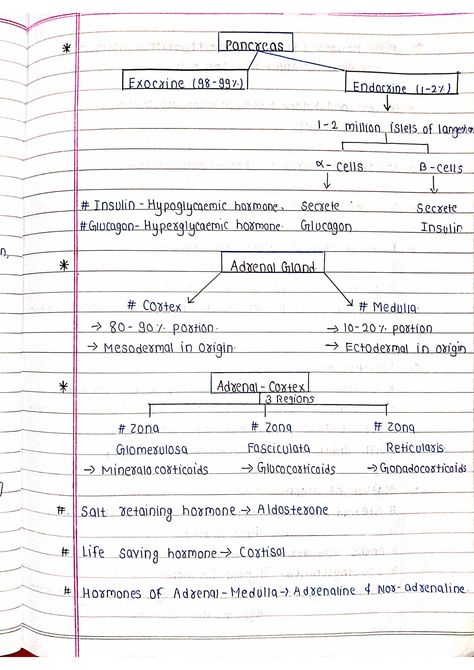 * Pancreas
Exocrine (98-99%) Endocrine (1-2%)
1-2 million islets of
α-cells β-cells
# Insulin - Hypoglycaemic hormone. Secrete Secrete
# Glucagon - Hyperglycaemic hormone. Glucagon Insulin
* Adrenal Gland
# Cortex # Medulla
→ 80-90% portion. → 10-20% portion
→ Mesodermal in origin. → Ectodermal in origin
* Adrenal-Cortex
3 Regions
# Zona # Zona # Zona
Glomerulosa Fasciculata Reticularis
→ Mineralo corticoids → Glucocorticoids → Gonadocorticoids
# Salt retaining hormone → Aldosterone
# Life saving hormone → Cortisol
# Hormones of Adrenal-Medulla → Adrenaline & Nor-adrenaline.